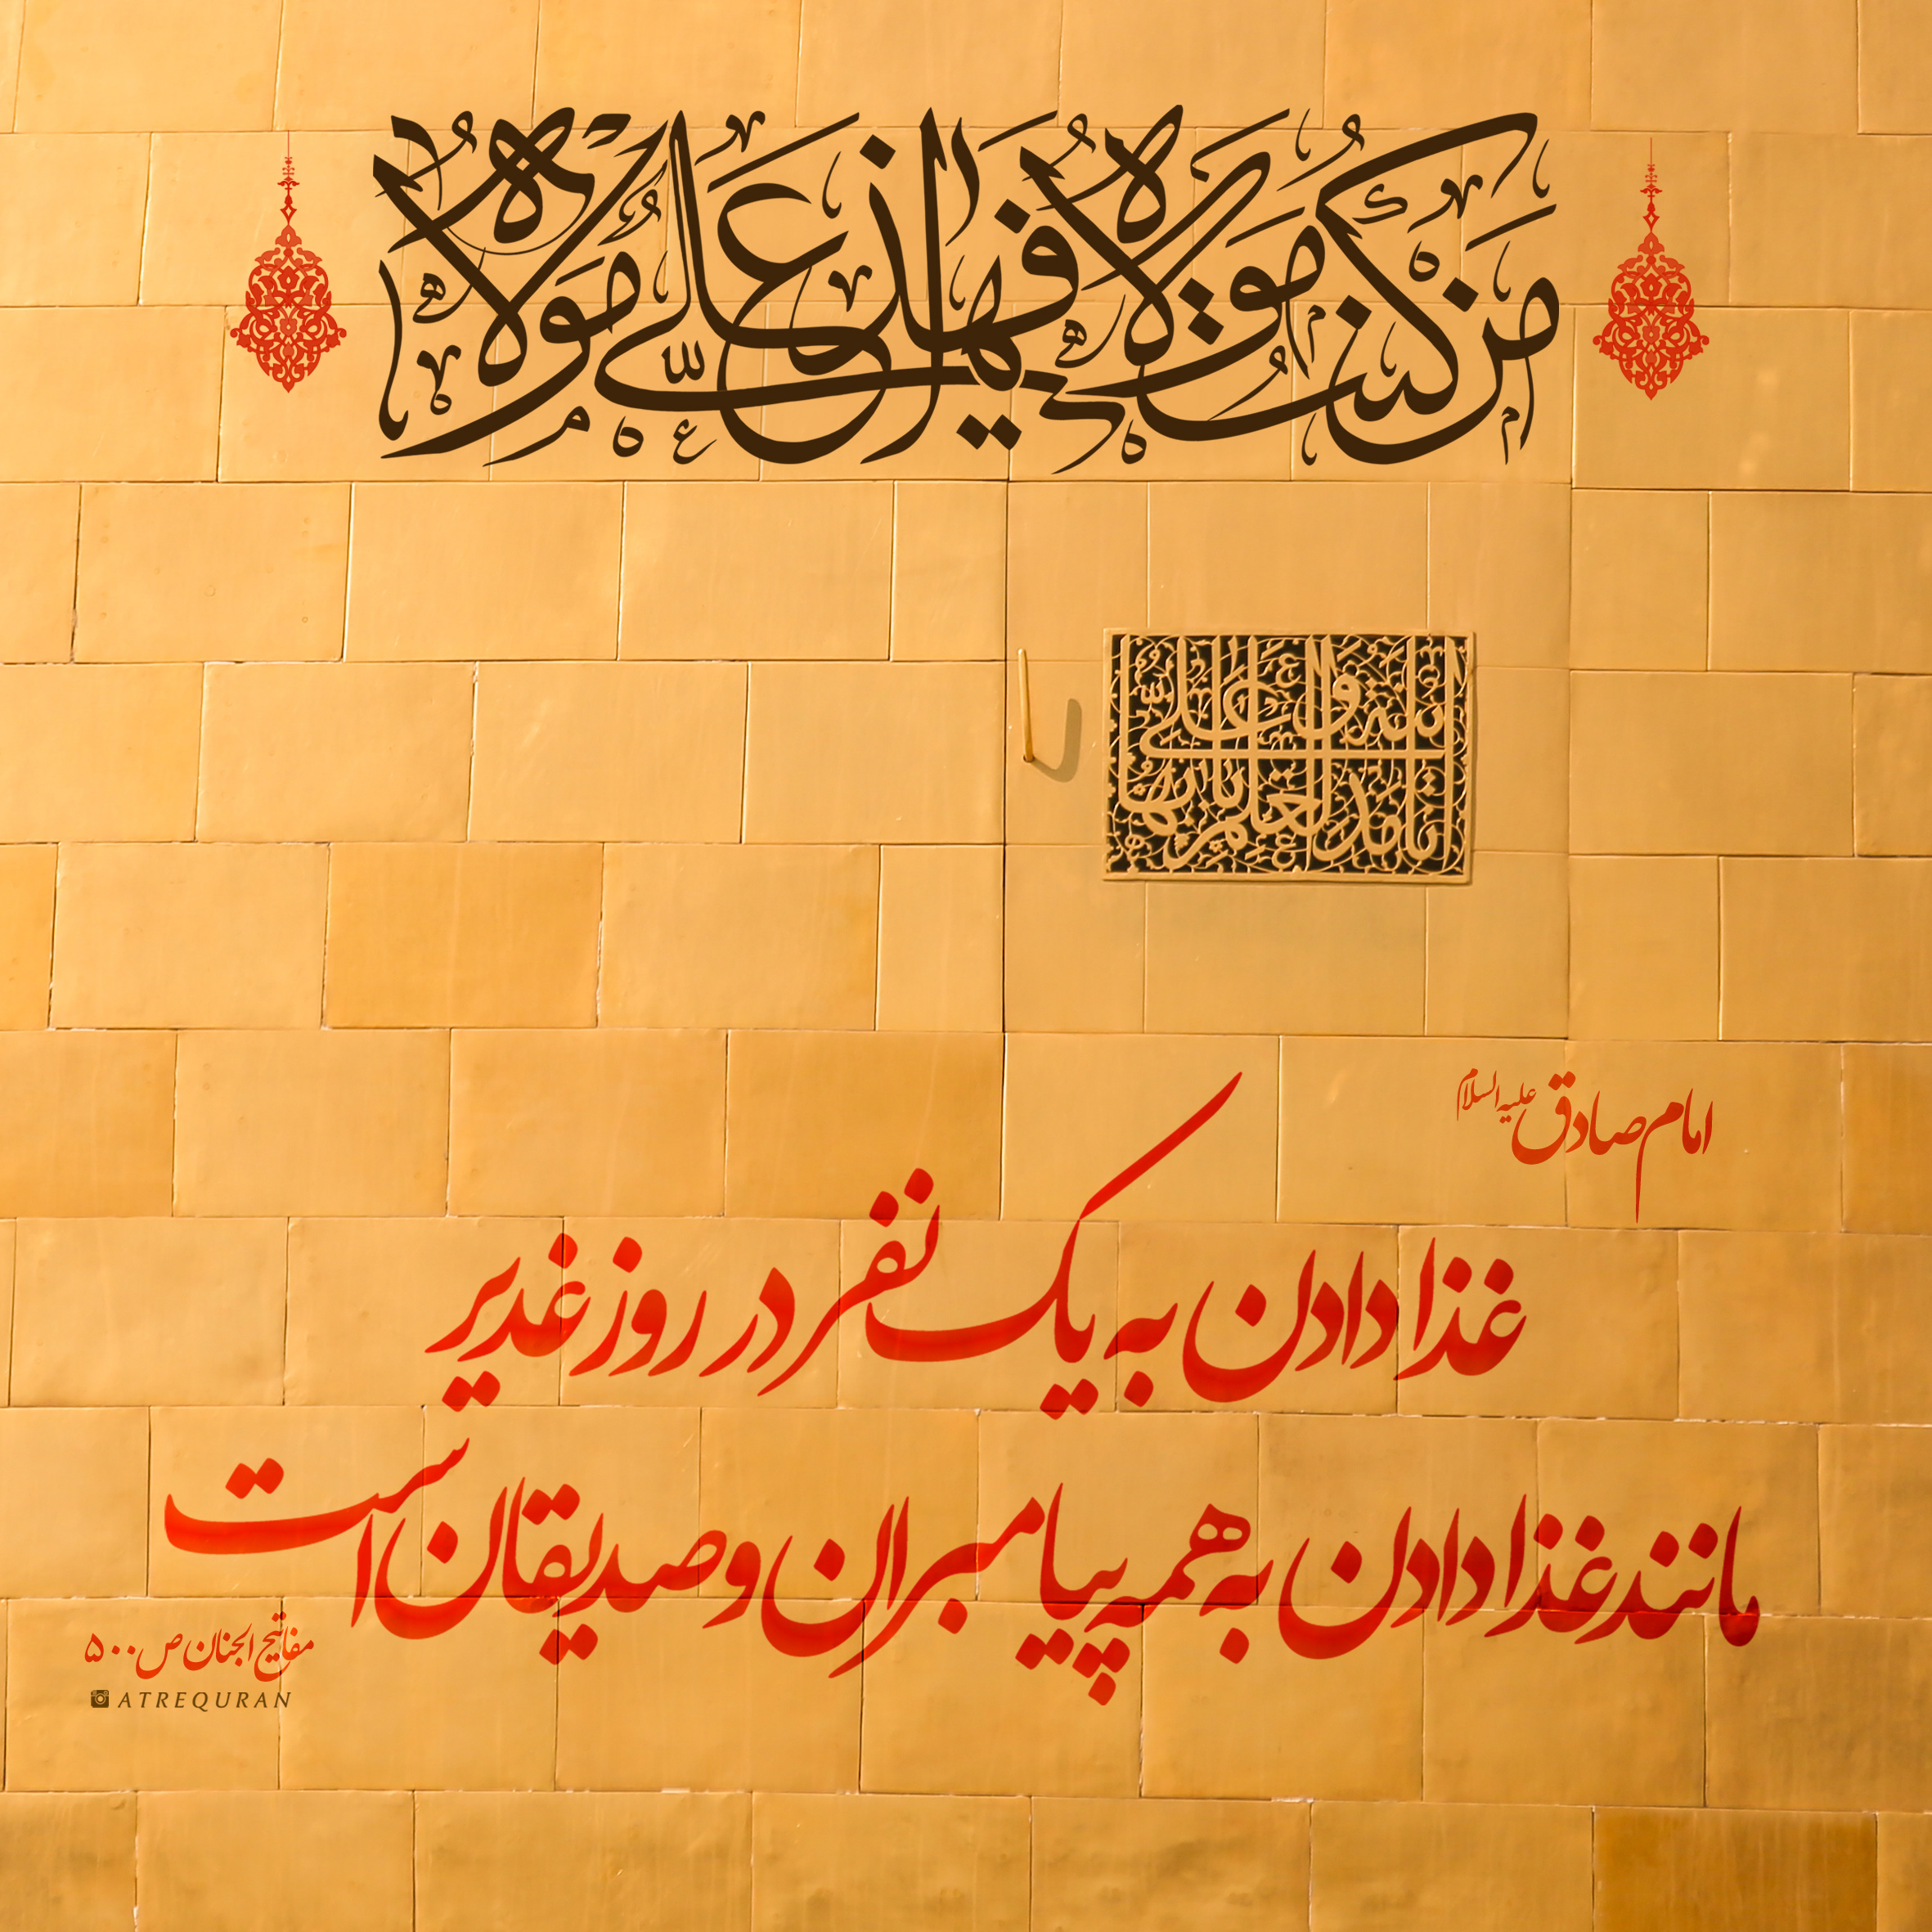 من كنت مولاه فهذا علي مولاه
امام صادق علیه السلام
غذا دادن به یک نفر در روز غدیر
مانند غذا دادن به همه پیامبران و صدیقان است
مفاتیح الجنان ص ۵۰۰
ATREQURAN